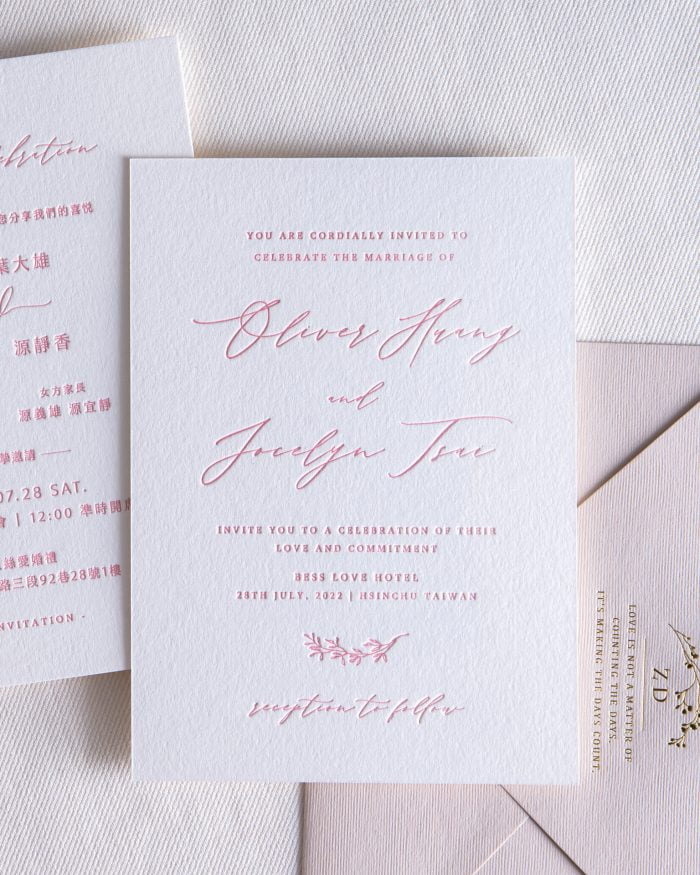 YOU ARE CORDIALLY INVITED TO
CELEBRATE THE MARRIAGE OF
Oliver Huang
and
Jocelyn Tsai
INVITE YOU TO A CELEBRATION OF THEIR
LOVE AND COMMITMENT
BESS LOVE HOTEL
28TH JULY, 2022 | HSINCHU TAIWAN
reception to follow
分享我們的喜悅
葉大雄
源靜香
女方家長
源義雄 源宜靜
邀請
07.28 SAT.
| 12:00 準時開席
緣愛婚禮
路三段92巷28號1樓
INVITATION -
LOVE IS NOT A MATTER OF
COUNTING THE DAYS.
IT'S MAKING THE DAYS COUNT.
ZD